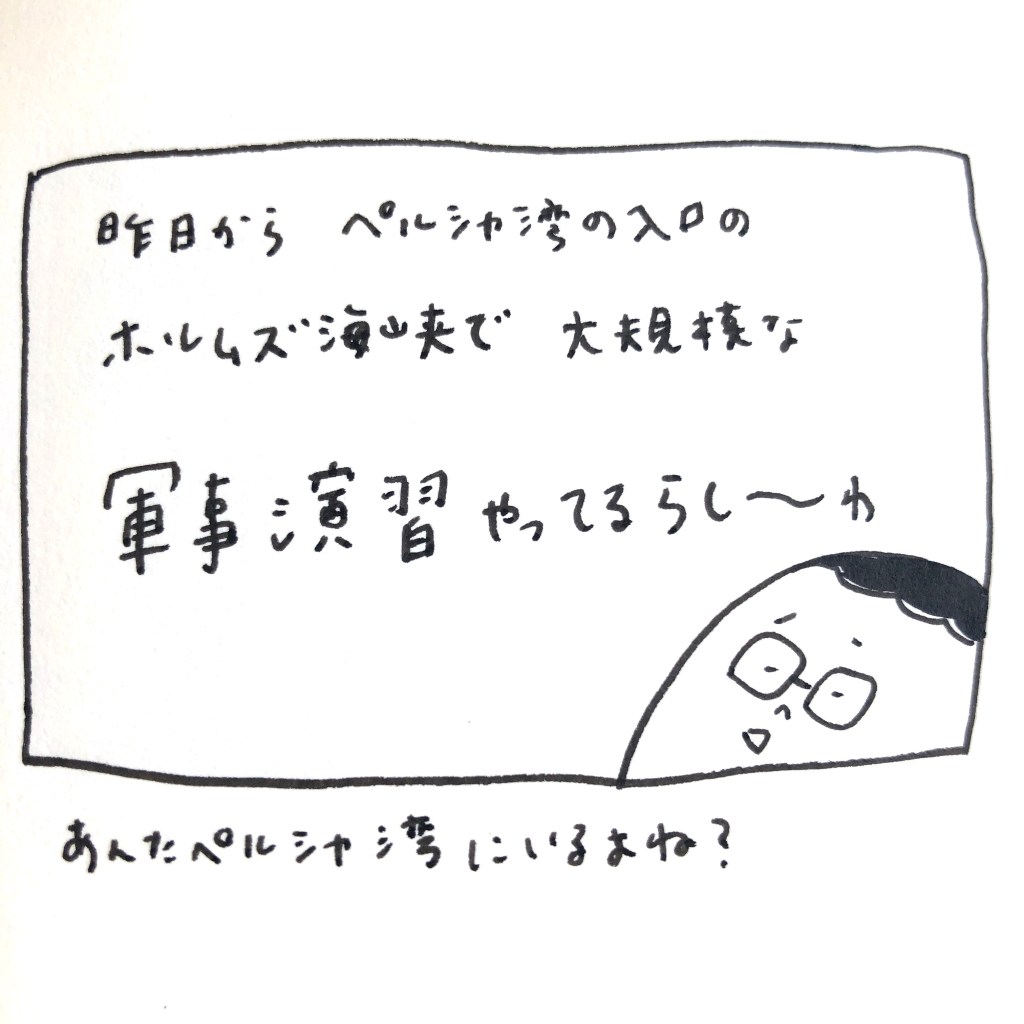 昨日から ペルシャ湾の入口の
ホルムズ海峡で 大規模な
軍事演習やってるらし〜わ
あんたペルシャ湾にいるよね?